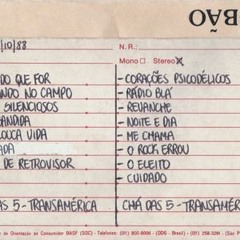 BÃO
/10/88
N.R.:
Mono □ Stereo ☒
DO QUE FOR
ANDO NO CAMPO
SILENCIOSOS
BANDIDA
LOUCA VIDA
ADA
DE RETROVISOR
AS 5 - TRANSAMÉRICA
- CORAÇÕES PSICODÉLICOS
- RÁDIO BLÁ
- REVANCHE
- NOITE E DIA
- ME CHAMA
- O ROCK ERROU
- O ELEITO
- CUIDADO
CHÁ DAS 5 - TRANSAMÉR
de Orientação ao Consumidor BASF (SOC) - Telefones: (011)